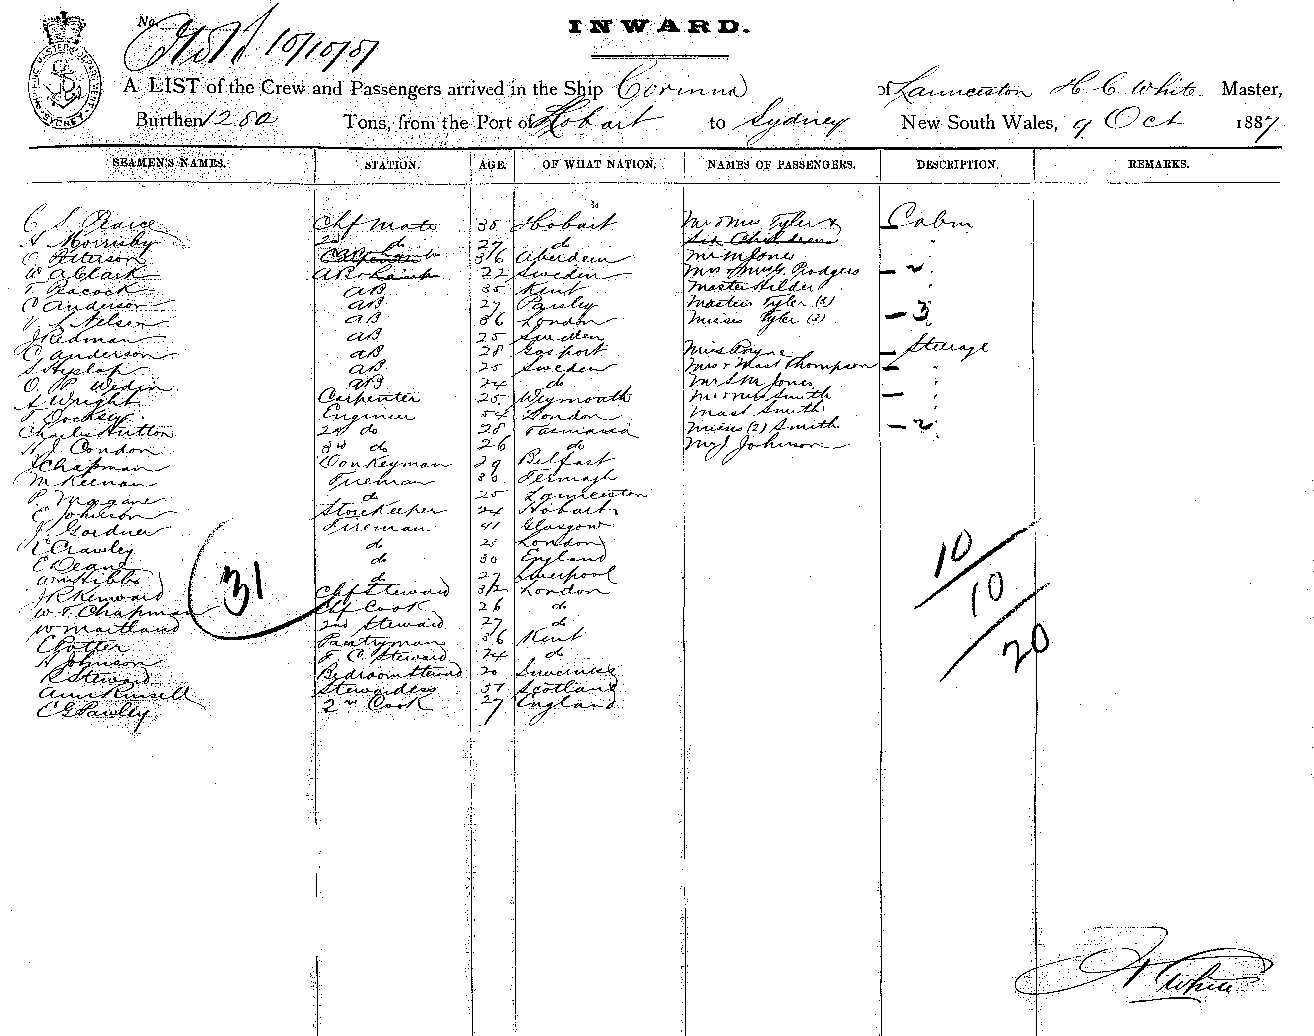 INWARD.
No.
10/10/87
A LIST of the Crew and Passengers arrived in the Ship Corinna of Launceston H. C. White Master,
Burthen 1280 Tons, from the Port of Hobart to Sydney New South Wales, 9 Oct 1887
SEAMEN'S NAMES. STATION. AGE. OF WHAT NATION. NAMES OF PASSENGERS. DESCRIPTION. REMARKS.
C S Pearce Chf Mate Hobart Mr & Mrs Tyler & Cabin
A Morrisby 2nd do 27 do Six Children
36 Aberdeen Mr M Jones
W A Clark 22 Sweden Rodgers
T Peacock AB 35 Kent Master Hilder
C Anderson AB 27 Paisley Masters Tyler (3)
Nelson AB 36 London Misses Tyler (3) 3
J Redman AB 25 Sweden
C Anderson AB 28 Gosport Miss Payne Steerage
S Hyslop AB 25 Sweden Mrs & Mast Thompson
AB 24 do Jones
A Wright Carpenter 25 Weymouth Mr & Mrs Smith
Engineer 54 London Mast Smith
Charles Hutton 2nd do 28 Tasmania Misses (2) Smith
H J Condon 3rd do 26 do Johnson
J Chapman Donkeyman 29 Belfast
M Keenan Fireman 30
do 25 Launceston
E Johnson Storekeeper 24 Hobart
J Gardner Fireman 41 Glasgow
Crawley do London
E Deane do 30 England
Wm Hibbs do 27 Liverpool
J R Kenward Chf Steward 32 London
W T Chapman Chf Cook 26 do
W Maitland 2nd Steward 27 do
C Potter Pantryman 36 Kent
A Johnson F. C. Steward 24 do
R Steward Bedroom Steward 20 Inverness
Stewardess Scotland
2nd Cook 27 England
31
10
10
20
White